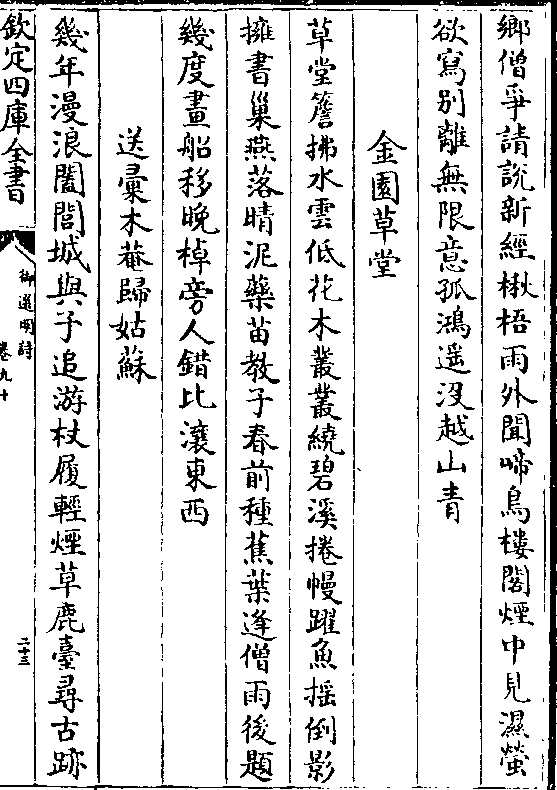 鄉僧爭請說新經楸梧雨外聞啼鳥樓閣煙中見濕螢
欲寫別離無限意孤鴻遥沒越山青
金園草堂
草堂簷拂水雲低花木叢叢繞碧溪捲幔躍魚摇倒影
擁書巢燕落晴泥藥苗教子春前種蕉葉逢僧雨後題
幾度畫船移晚棹旁人錯比瀼東西
送彙木菴歸姑蘇
幾年漫浪闔閭城與子追游杖履輕煙草鹿臺尋古跡
欽定四庫全書
御選明詩
卷九十
二十三